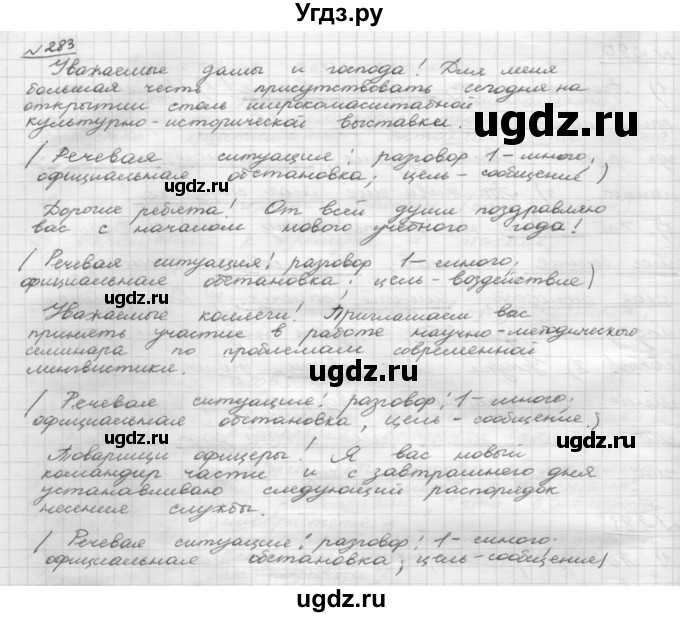 Угдз.ру
№283
Уважаемые дамы и господа! Для меня
большая честь присутствовать сегодня на
открытии столь широкомасштабной
культурно-исторической выставки.
ugdz.ru
(Речевая ситуация: разговор 1-много,
официальная обстановка; цель-сообщение)
ugdz.ru
Дорогие ребята! От всей души поздравляю
вас с началом нового учебного года!
(Речевая ситуация: разговор 1-много.
официальная обстановка; цель-воздействие)
ugdz.ru
ugdz.ru
Уважаемые коллеги! Приглашаем вас
принять участие в работе научно-методического
семинара по проблемам современной
лингвистики.
ugdz.ru
(Речевая ситуация: разговор: 1-много.
официальная обстановка, цель-сообщение.)
ugdz.ru
Товарищи офицеры! Я ваш новый
командир части и с завтрашнего дня
устанавливаю следующий распорядок
несения службы.
ugdz.ru
(Речевая ситуация: разговор: 1-много.
официальная обстановка; цель-сообщение)
ugdz.ru
ugdz.ru